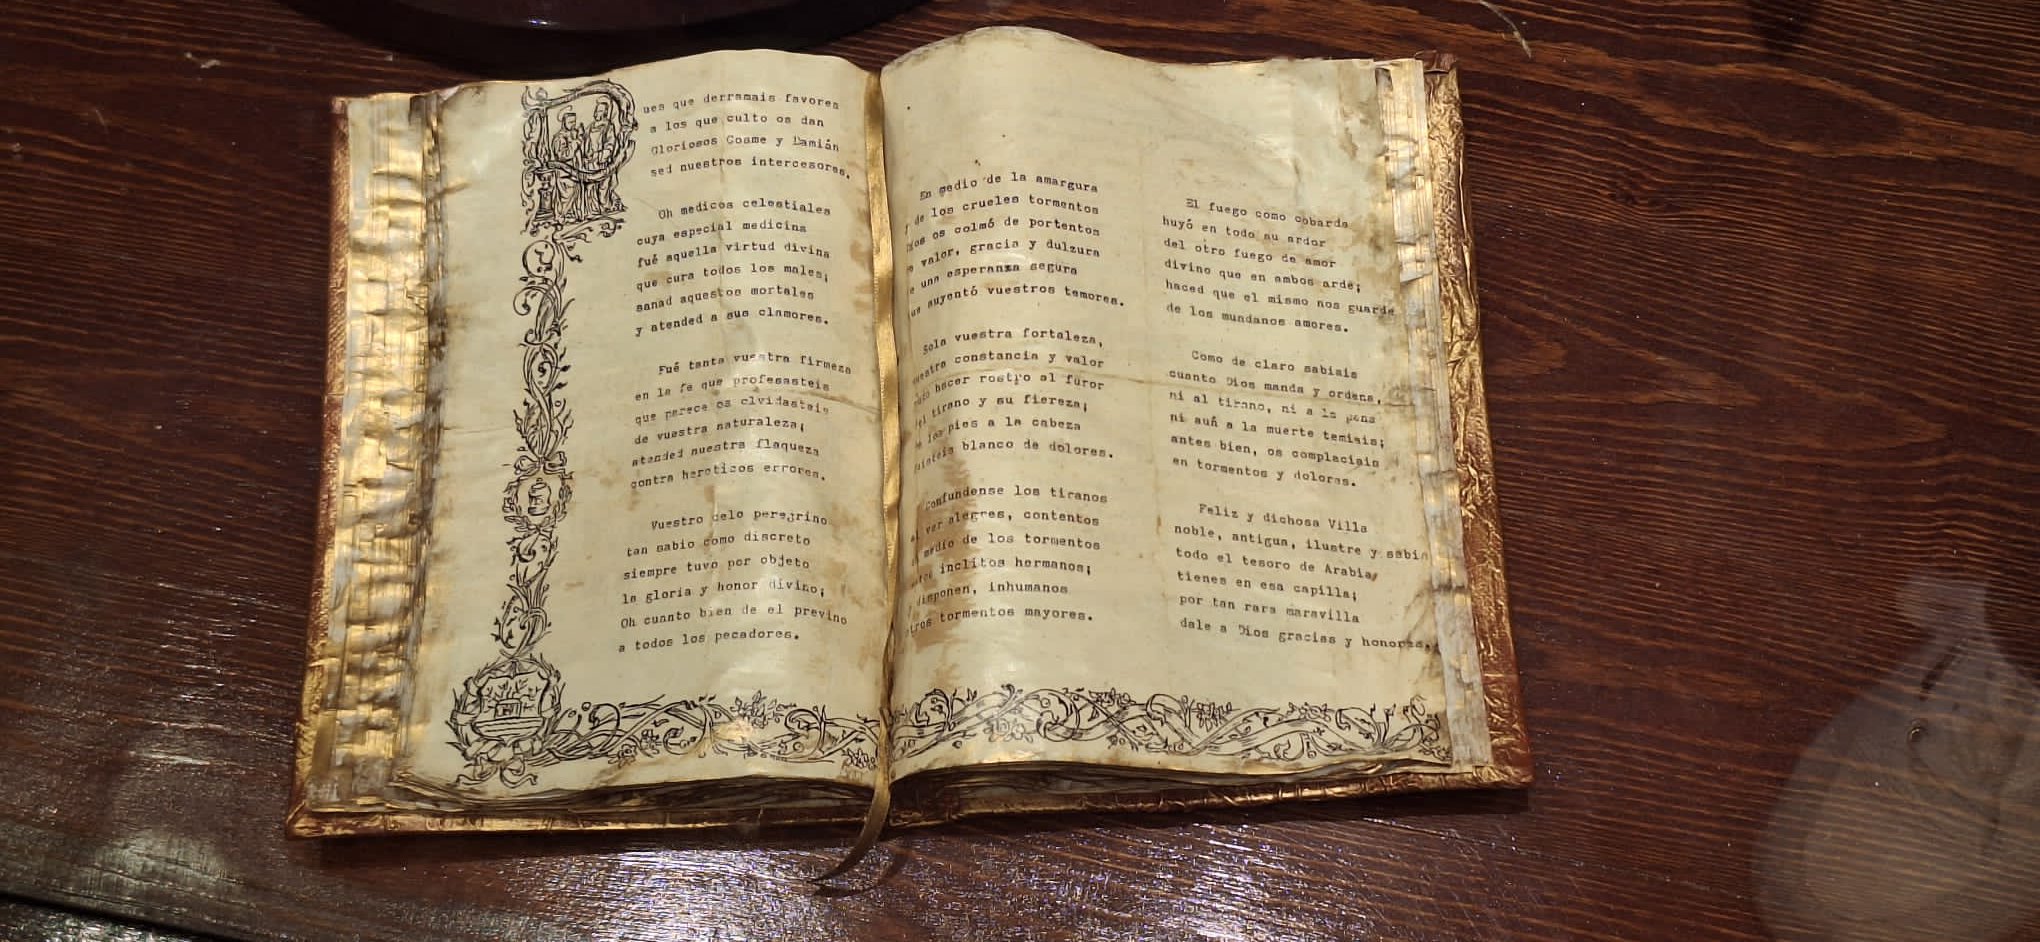 Pues que derramais favores
a los que culto os dan
Gloriosos Cosme y Damián
sed nuestros intercesores.
Oh medicos celestiales
cuya especial medicina
fué aquella virtud divina
que cura todos los males;
sanad aquestos mortales
y atended a sus clamores.
Fué tanta vuestra firmeza
en la fe que profesasteis
que parece os olvidasteis
de vuestra naturaleza;
atended nuestra flaqueza
contra hereticos errores.
Vuestro celo peregrino
tan sabio como discreto
siempre tuvo por objeto
la gloria y honor divino;
Oh cuanto bien de el previno
a todos los pecadores.
En medio de la amargura
y de los crueles tormentos
Dios os colmó de portentos
de valor, gracia y dulzura
e una esperanza segura
que auyentó vuestros temores.
Sola vuestra fortaleza,
vuestra constancia y valor
pudo hacer rostro al furor
del tirano y su fiereza;
de los pies a la cabeza
fuisteis blanco de dolores.
Confundense los tiranos
al ver alegres, contentos
en medio de los tormentos
inclitos hermanos;
y disponen, inhumanos
otros tormentos mayores.
El fuego como cobarde
huyó en todo su ardor
del otro fuego de amor
divino que en ambos arde;
haced que el mismo nos guarde
de los mundanos amores.
Como de claro sabiais
cuanto Dios manda y ordena,
ni al tirano, ni a la pena
ni aun a la muerte temiais;
antes bien, os complaciais
en tormentos y dolores.
Feliz y dichosa Villa
noble, antigua, ilustre y sabia
todo el tesoro de Arabia
tienes en esa capilla;
por tan rara maravilla
dale a Dios gracias y honores.